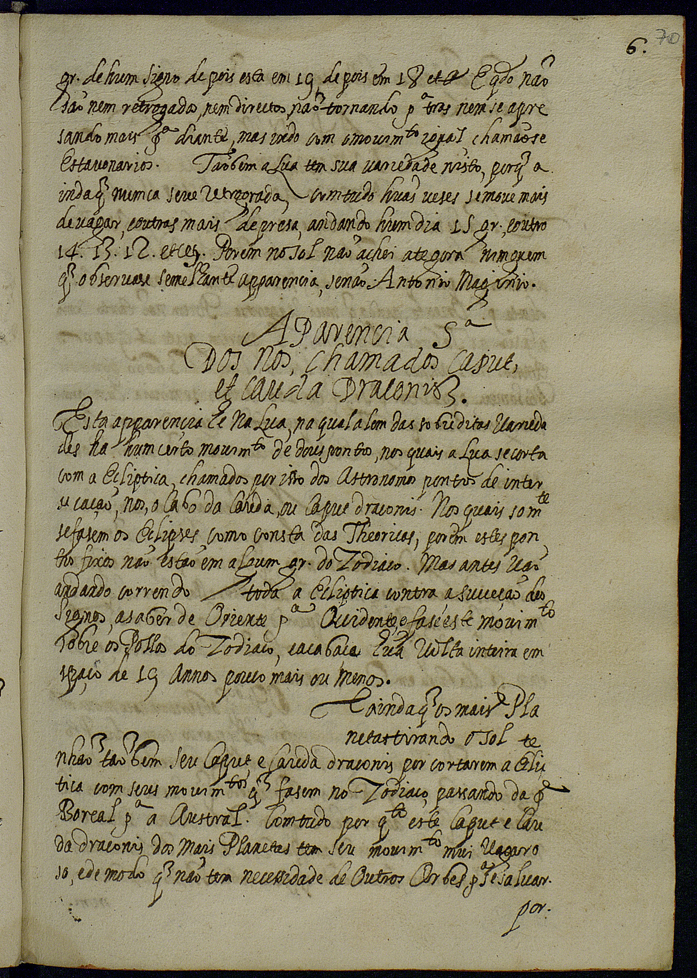 6. 70
gr. de hum signo depois esta em 19 depois em 18 etc. E qdo não
são nem retrogados, nem directos, não tornando pª tras nem se apre
sando mais pª diante, mas indo com o movimto igual chamãose
Estacionarios. Tãobem a Lua tem sua variedade nisto, porq̃ a
inda q̃ nunca seve retrograda, comtudo huãs veses semove mais
devagar, e outras mais depresa, andando hum dia 15 gr., e outro
14. 13. 12. etcs. Porem no sol não achei ategora ninguem
q̃ observase semelhante apparencia, senão Antonio Maginio.
APARENCIA 5ª
DOS NOS, chamados caput,
et cauda DRACONIS.
Esta apparencia he Na Lua, na qual alem das sobreditas varieda
des ha hum certo movimto de dous pontos, nos quais a Lua se corta
com a Ecliptica, chamados por isso dos Astronomos pontos de inter
secação, nos, o Cabo da Cauda, ou Caput draconis. Nos quais somte
se fasem os Eclipses como consta das Theoricas, porem estes pon
tos fixos não estão em algum gr. do Zodiaco. Mas antes vão
andando correndo toda a Ecliptica contra a suceção dos
signos, asaber de Oriente pª Occidente e fas este movimto
sobre os Pollos do Zodiaco, e acaba hua volta inteira em
espaço de 19 Annos pouco mais ou menos.
E ainda q̃ os mais Pla
netas tirando o sol te
nhão tãobem seu Caput e Cauda draconis por cortarem a Eclip
tica com seus movimtos q̃ fasem no Zodiaco, passando da pte
Boreal pª a Austral. Comtudo por qto este Caput e Cau
da draconis dos Mais Planetas tem seu movimto mui Vagaro
so, e de modo q̃ não tem necessidade de Outros Orbes pª se salvar.
por.